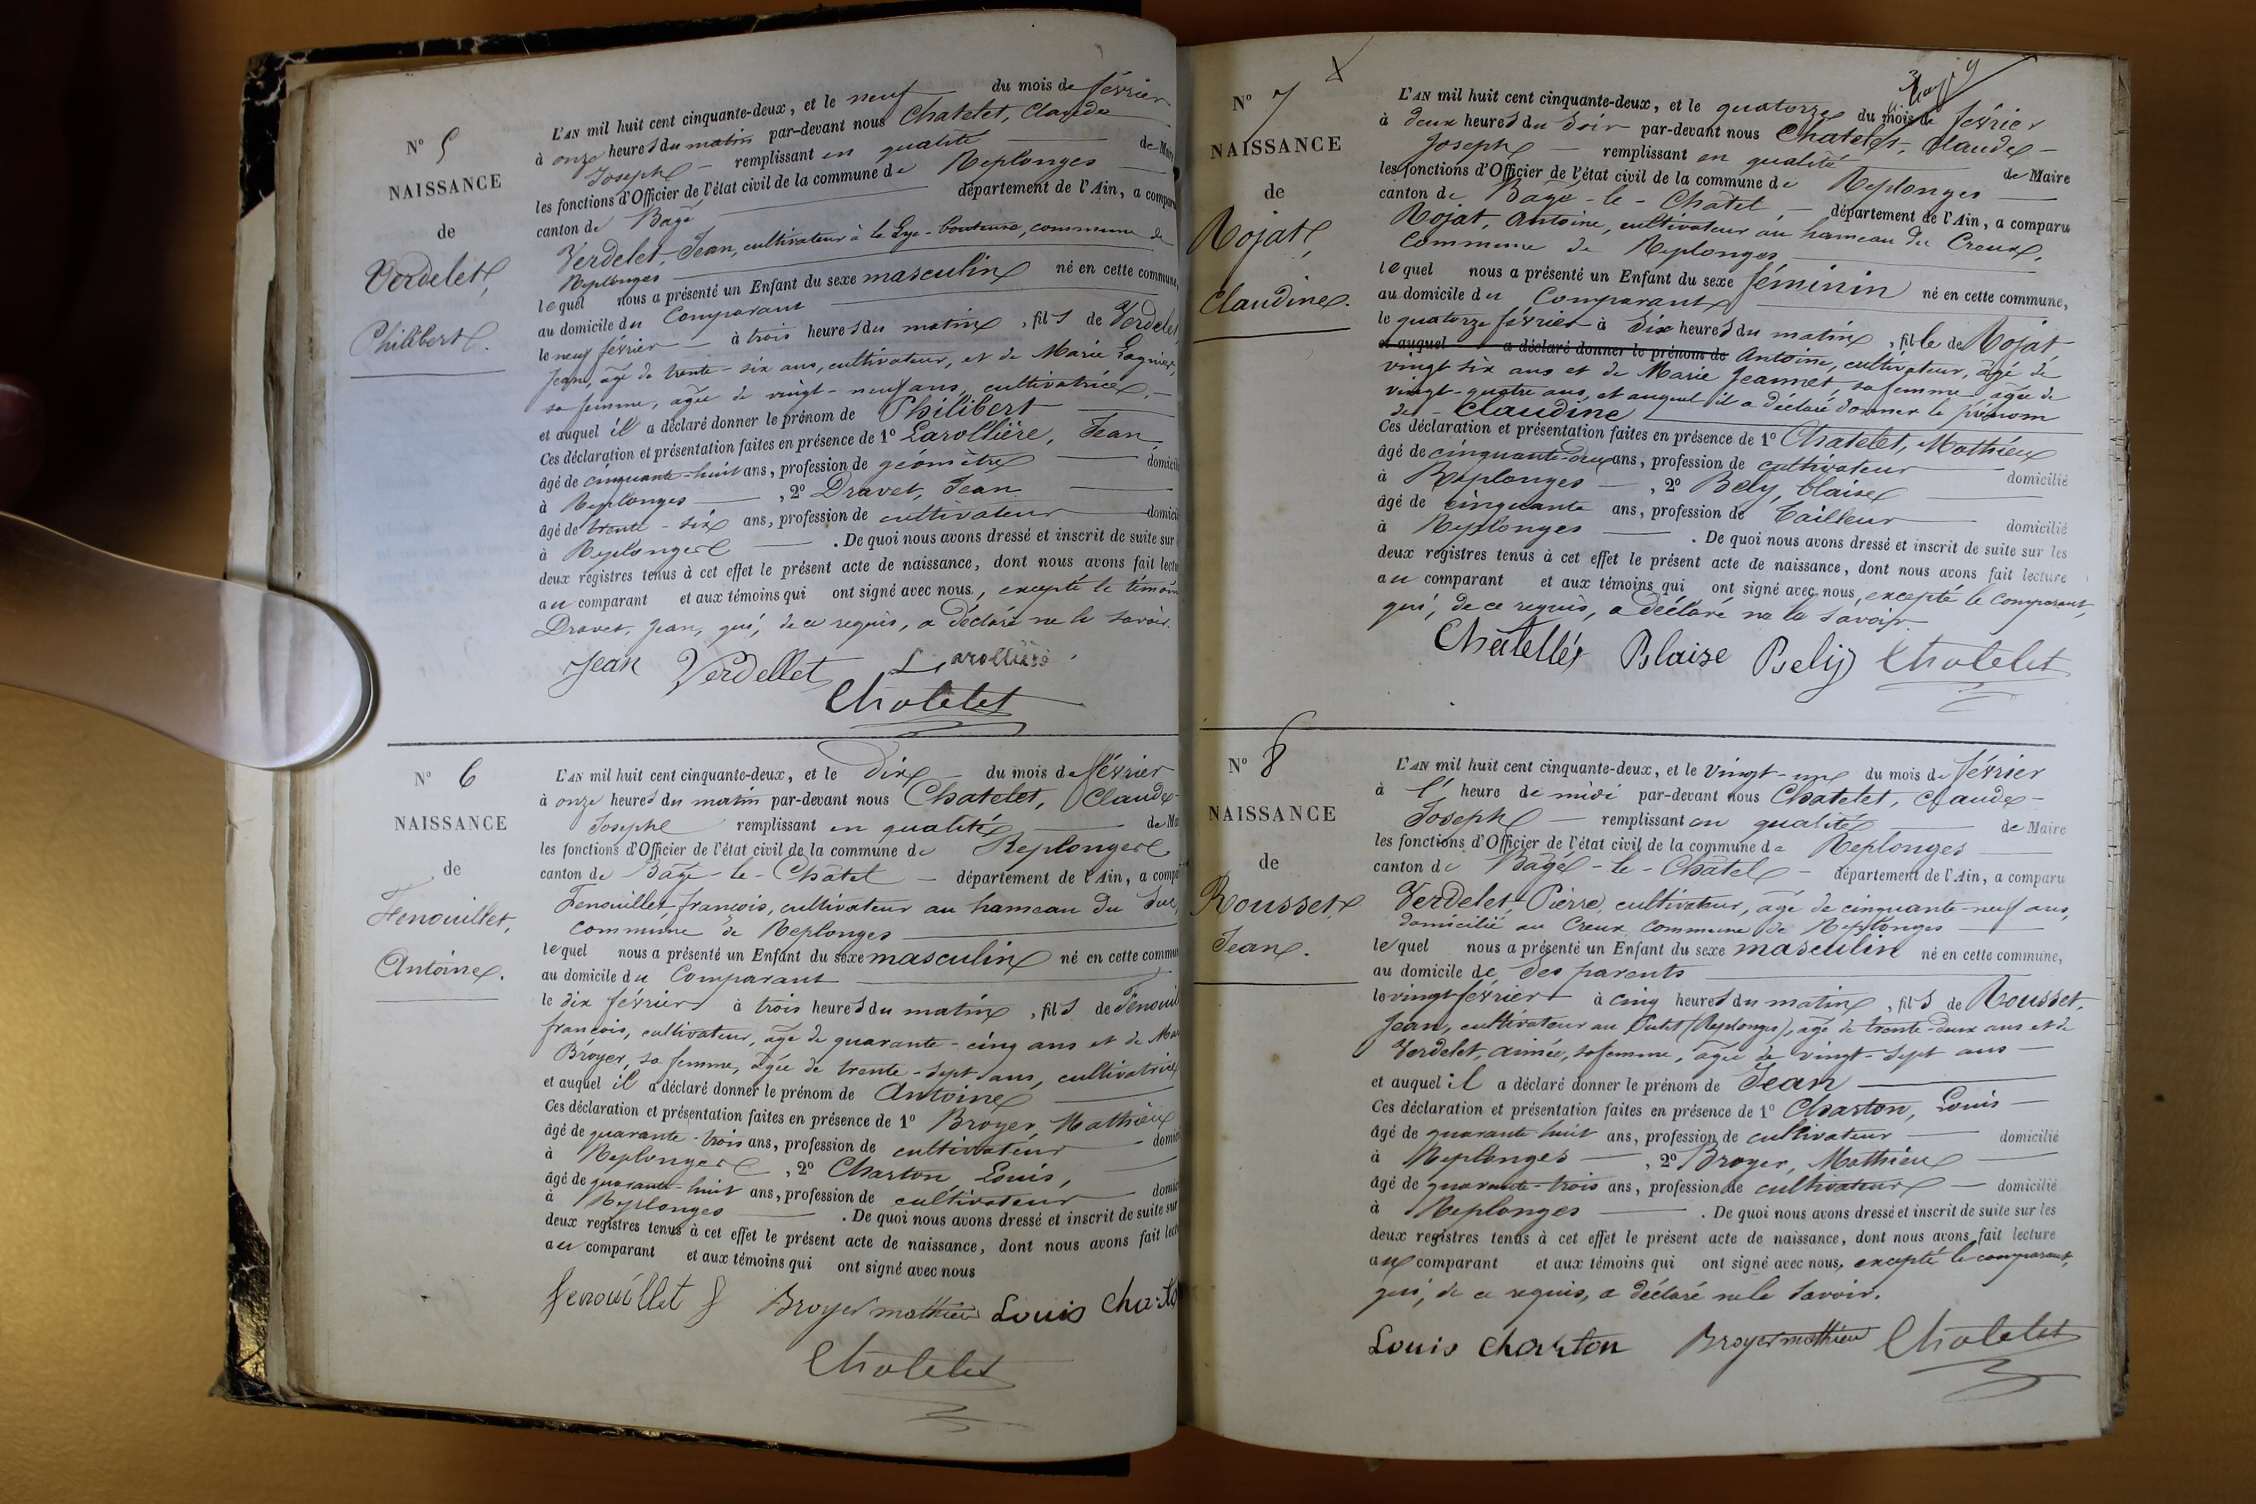 N° 5
NAISSANCE
de
Verdelet,
Philibert.
L'AN mil huit cent cinquante-deux, et le neuf du mois de février
à onze heures du matin par-devant nous Chatelet, Claude
Joseph remplissant en qualité de Maire
les fonctions d'Officier de l'état civil de la commune de Replonges
canton de Bagé département de l'Ain, a comparu
Verdelet, Jean, cultivateur à la commune de
Replonges
lequel nous a présenté un Enfant du sexe masculin né en cette commune,
au domicile du Comparant
le neuf février à trois heures du matin, fils de Verdelet,
Jean, âgé de trente-six ans, cultivateur, et de Marie
sa femme, âgée de vingt-neuf ans, cultivatrice,
et auquel il a déclaré donner le prénom de Philibert
Ces déclaration et présentation faites en présence de 1° Larollière, Jean,
âgé de cinquante-huit ans, profession de géomètre domicili
à Replonges, 2° Dravet, Jean
âgé de trente-six ans, profession de cultivateur domicili
à Replonges. De quoi nous avons dressé et inscrit de suite sur
deux registres tenus à cet effet le présent acte de naissance, dont nous avons fait lectu
au comparant et aux témoins qui ont signé avec nous, excepté le témoin
Dravet, Jean, qui, de ce requis, a déclaré ne le savoir.
Jean Verdellet Larollière
Chatelet
N° 6
NAISSANCE
de
Fenouillet,
Antoine.
L'AN mil huit cent cinquante-deux, et le dix du mois de février
à onze heures du matin par-devant nous Chatelet, Claude-
Joseph remplissant en qualité de Ma
les fonctions d'Officier de l'état civil de la commune de Replonges
canton de Bagé-le-Châtel département de l'Ain, a compa
Fenouillet, françois, cultivateur au hameau du
commune de Replonges
lequel nous a présenté un Enfant du sexe masculin né en cette commun
au domicile du Comparant
le dix février à trois heures du matin, fils de Fenouil
françois, cultivateur, âgé de quarante-cinq ans et de Ma
Broyer, sa femme, âgée de trente-sept ans, cultivatrice
et auquel il a déclaré donner le prénom de Antoine
Ces déclaration et présentation faites en présence de 1° Broyer, Mathieu
âgé de quarante-trois ans, profession de cultivateur domici
à Replonges, 2° Charton, Louis,
âgé de quarante-huit ans, profession de cultivateur domic
à Replonges. De quoi nous avons dressé et inscrit de suite sur
deux registres tenus à cet effet le présent acte de naissance, dont nous avons fait lect
au comparant et aux témoins qui ont signé avec nous
fenouillet f Broyer mathieu Louis Charto
Chatelet
N° 7
NAISSANCE
de
Rojat,
Claudine.
L'AN mil huit cent cinquante-deux, et le quatorze du mois de février
à deux heures du soir par-devant nous Chatelet, Claude-
Joseph remplissant en qualité de Maire
les fonctions d'Officier de l'état civil de la commune de Replonges
canton de Bagé-le-Châtel, département de l'Ain, a comparu
Rojat, Antoine, cultivateur au hameau du Creux,
Commune de Replonges,
lequel nous a présenté un Enfant du sexe féminin né en cette commune,
au domicile du Comparant
le quatorze février à six heures du matin, fille de Rojat
et auquel a déclaré donner le prénom de Antoine, cultivateur, âgé de
vingt six ans et de Marie Jeannet, sa femme âgée de
vingt-quatre ans, et auquel il a déclaré donner le prénom
de - Claudine
Ces déclaration et présentation faites en présence de 1° Chatelet, Mathieu
âgé de ans, profession de cultivateur
à Replonges, 2° Bely, blaise domicilié
âgé de cinquante ans, profession de tailleur
à Replonges domicilié
. De quoi nous avons dressé et inscrit de suite sur les
deux registres tenus à cet effet le présent acte de naissance, dont nous avons fait lecture
au comparant et aux témoins qui ont signé avec nous, excepté le comparant,
qui, de ce requis, a déclaré ne la savoir.
Chatellés Blaise Bely Chatelet
N° 8
NAISSANCE
de
Rousset
Jean.
L'AN mil huit cent cinquante-deux, et le vingt-un du mois de février
à l' heure de midi par-devant nous Chatelet, Claude-
Joseph remplissant en qualité de Maire
les fonctions d'Officier de l'état civil de la commune de Replonges
canton de Bagé-le-Châtel département de l'Ain, a comparu
Verdelet, Pierre, cultivateur, âgé de cinquante-neuf ans,
domicilié au Creux commune de Replonges
lequel nous a présenté un Enfant du sexe masculin né en cette commune,
au domicile de ses parents
le vingt février à cinq heures du matin, fils de Rousset,
Jean, cultivateur au (Replonges), âgé de trente-deux ans et de
Verdelet, aimée, sa femme, âgée de vingt-sept ans
et auquel il a déclaré donner le prénom de Jean
Ces déclaration et présentation faites en présence de 1° Charton, Louis
âgé de quarante-huit ans, profession de cultivateur domicilié
à Replonges, 2° Broyer, Mathieu
âgé de quarante-trois ans, profession de cultivateur domicilié
à Replonges. De quoi nous avons dressé et inscrit de suite sur les
deux registres tenus à cet effet le présent acte de naissance, dont nous avons fait lecture
au comparant et aux témoins qui ont signé avec nous, excepté le comparant,
qui, de ce requis, a déclaré ne le savoir.
Louis charton Broyer mathieu Chatelet